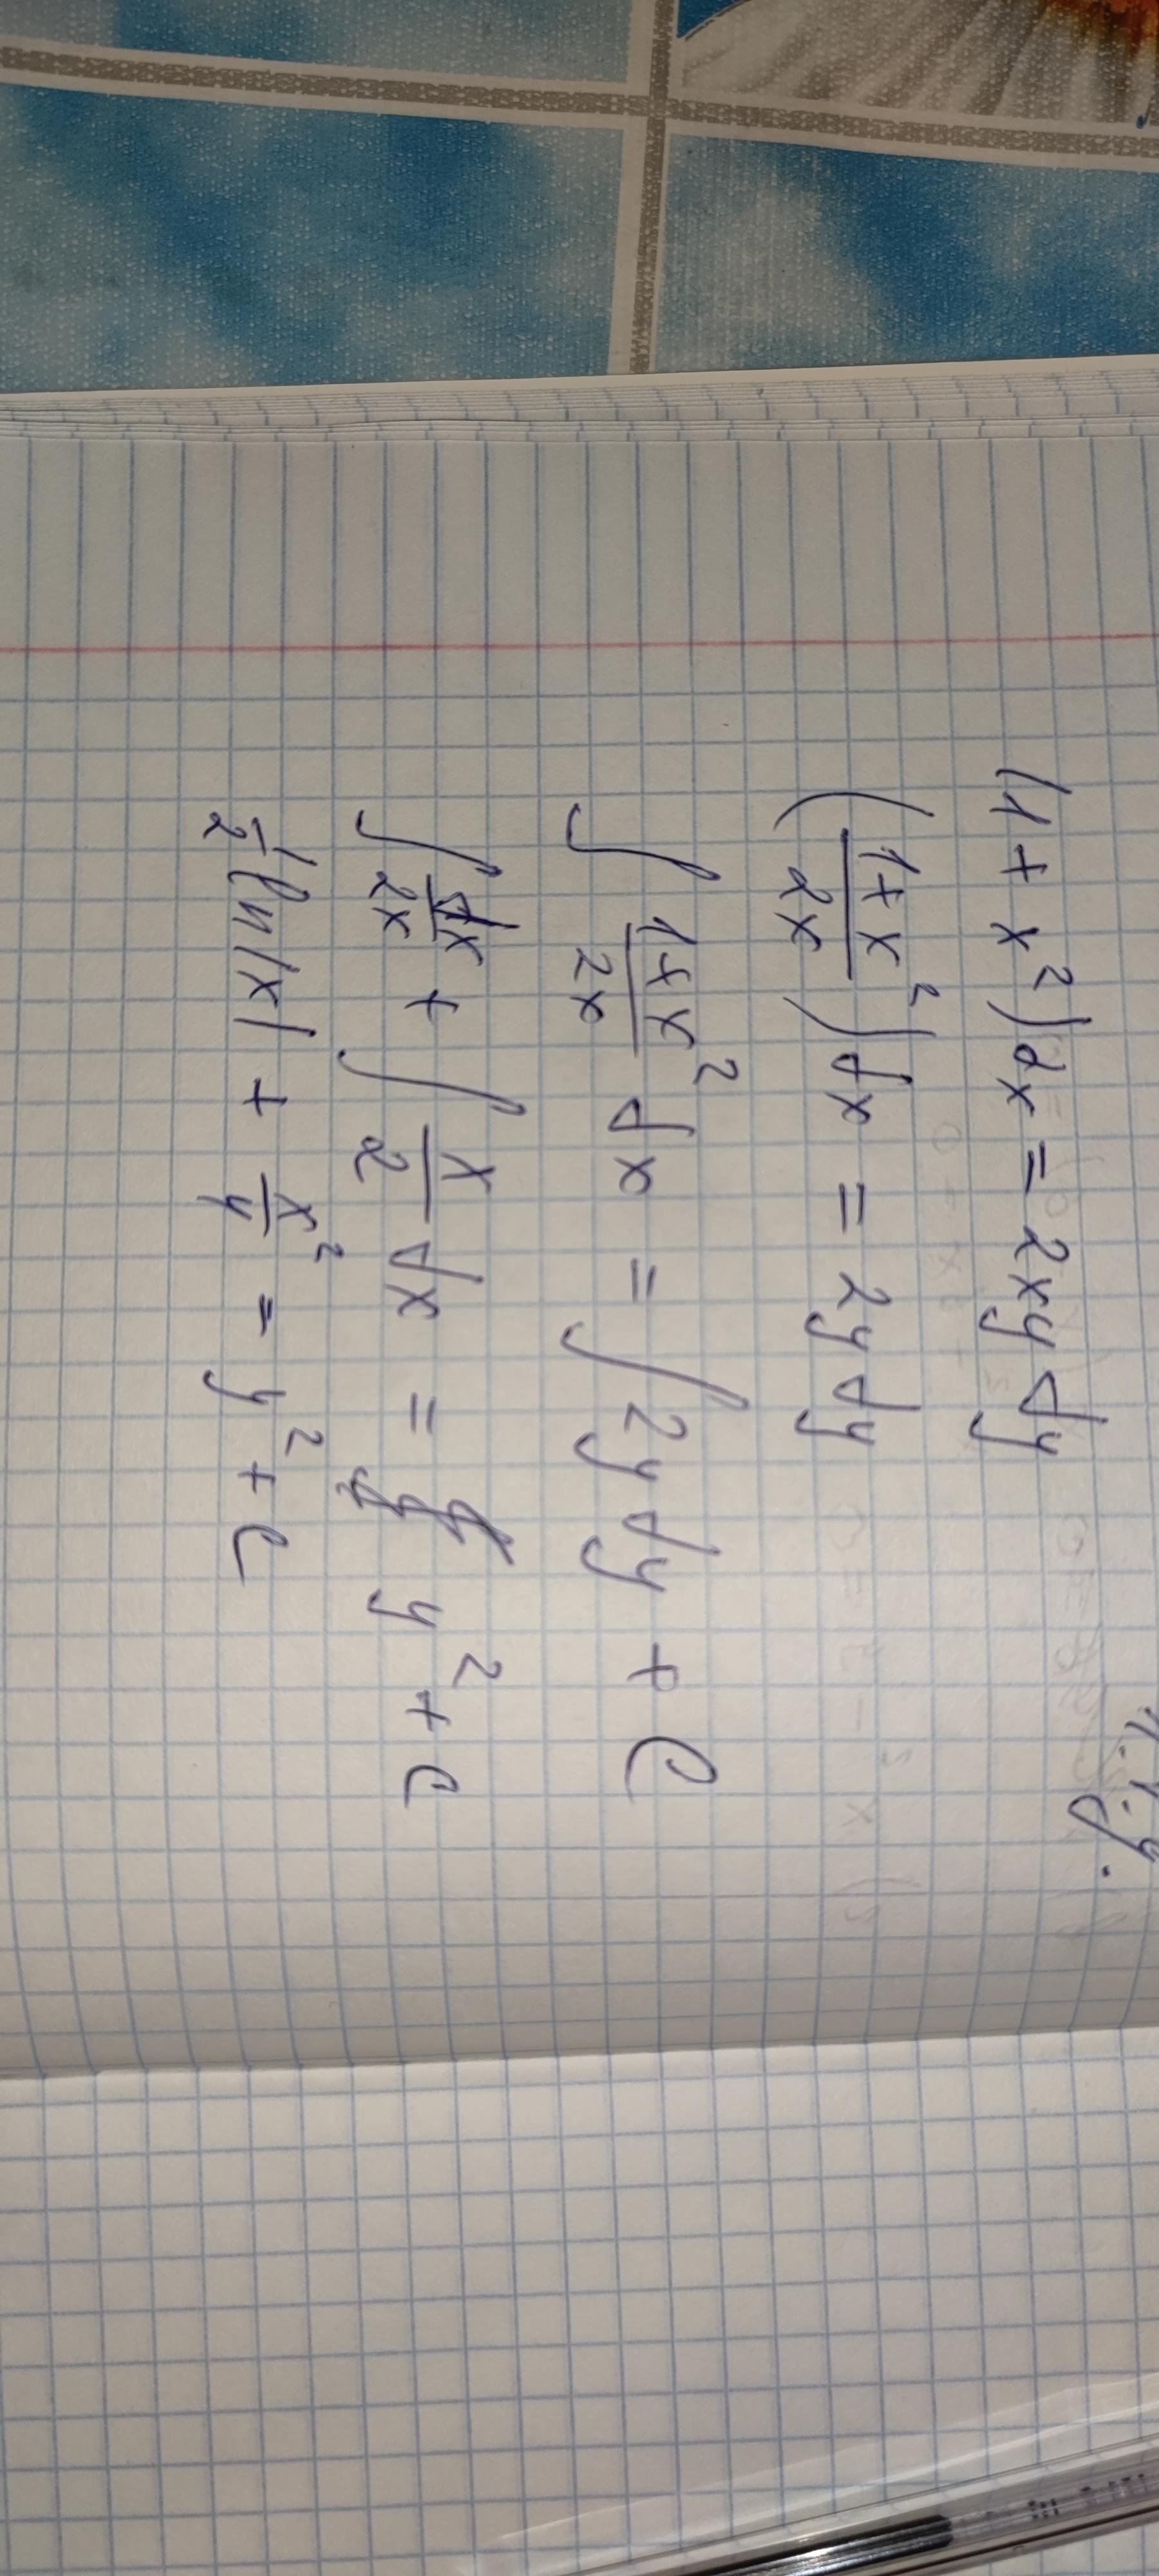 (1 + x²)dx = 2xy dy
((1+x²)/2x) dx = 2y dy
∫ (1+x²)/2x dx = ∫ 2y dy + C
∫ dx/2x + ∫ x/2 dx = y² + C
1/2 ln|x| + x²/4 = y² + C